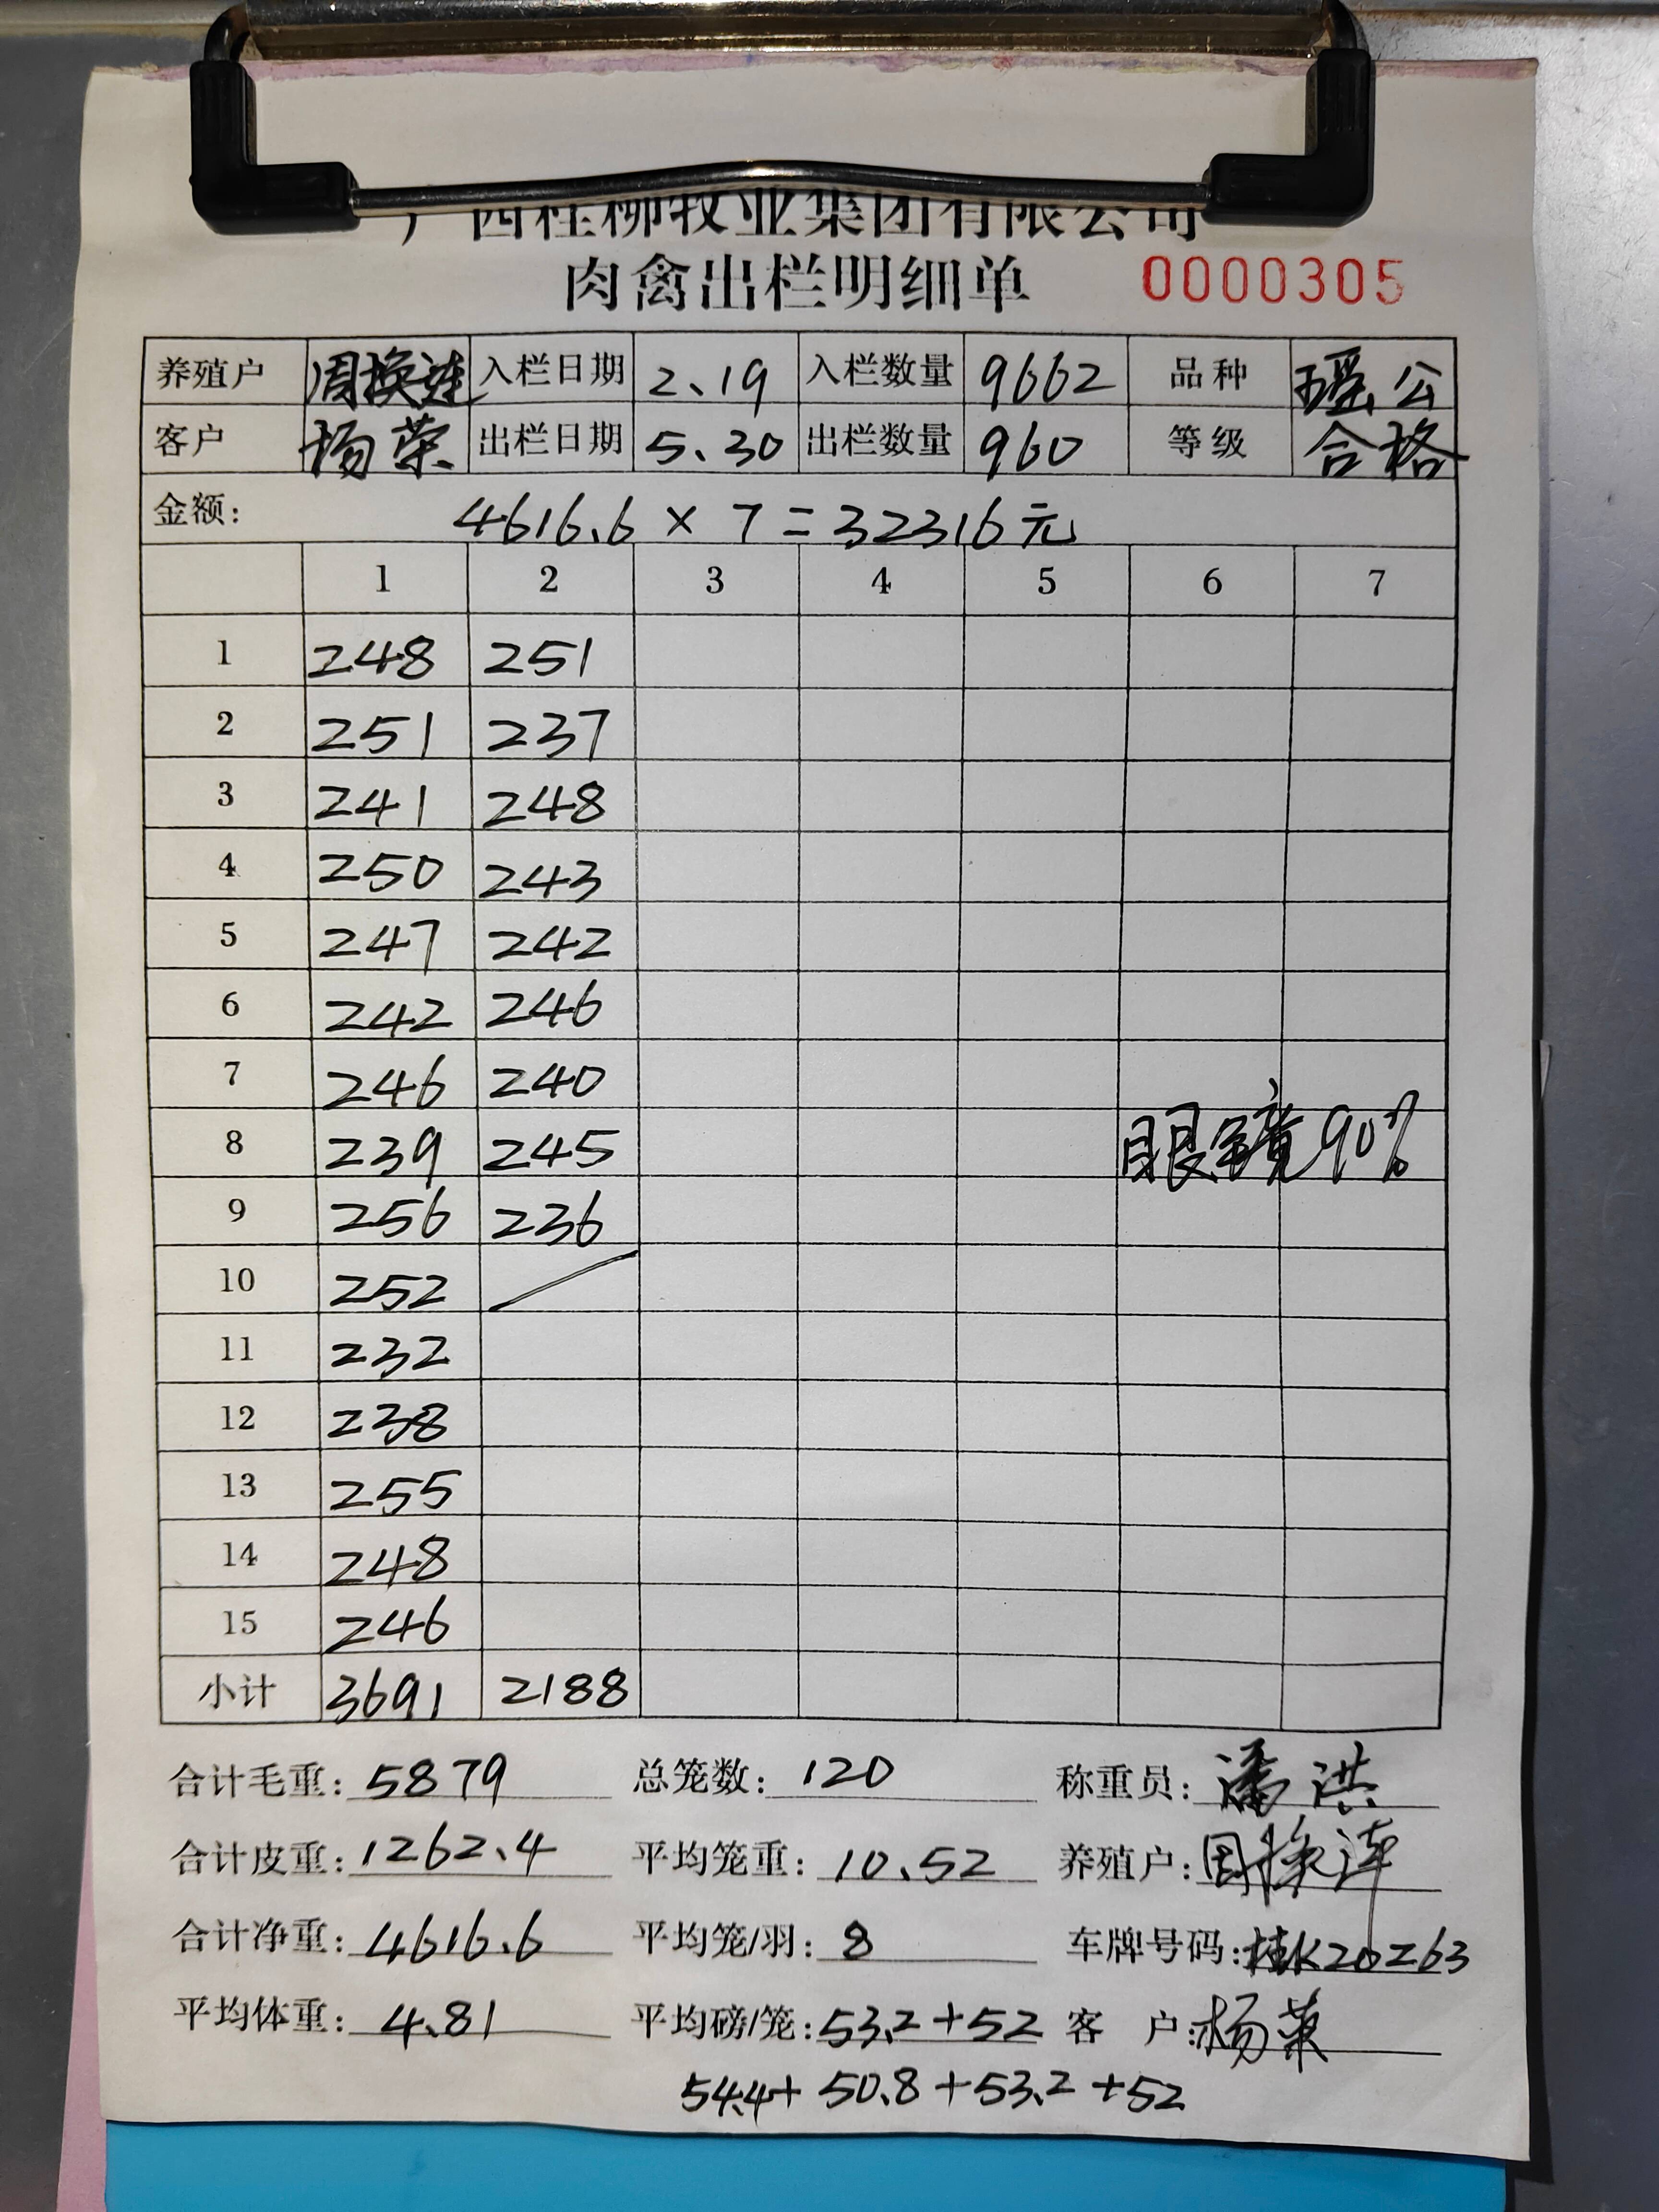 广西桂柳牧业集团有限公司
肉禽出栏明细单 0000305
养殖户 周换连 入栏日期 2.19 入栏数量 9662 品种 瑶公
客户 杨荣 出栏日期 5.30 出栏数量 960 等级 合格
金额: 4616.6 × 7 = 32316元
1 2 3 4 5 6 7
1 248 251
2 251 237
3 241 248
4 250 243
5 247 242
6 242 246
7 246 240
8 239 245 眼镜90%
9 256 236
10 252
11 232
12 238
13 255
14 248
15 246
小计 3691 2188
合计毛重: 5879 总笼数: 120 称重员: 潘洪
合计皮重: 1262.4 平均笼重: 10.52 养殖户: 周换连
合计净重: 4616.6 平均笼/羽: 8 车牌号码: 桂K20263
平均体重: 4.81 平均磅/笼: 53.2+52 客 户: 杨荣
54.4+ 50.8+53.2+52